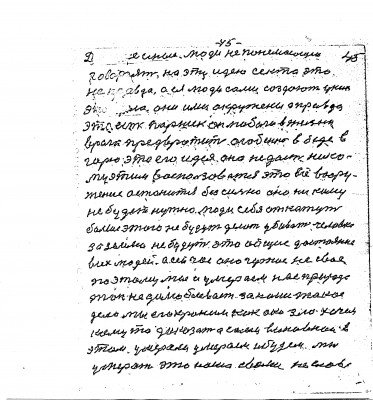 -45- 45
люди не понимающие
говорят, на эту идею секта это
неправда, а а люди сами создают у них
она, они ими окружены а правда
это как Паршек он любого в жизни
врага предвратит особенно в беде в
горю это его идея она не даст нико-
му этим воспользоваться это всё воору-
жение останится бессильно оно никому
не будет нужно. Люди себя откажут
более этого не будут делат убиват человека
за землю не будут это общие достояние
всех людей. а сейчас оно чужое не свое
поэтому мы и умераем нас природа
этой надино бливает. за наши такое
дело мы его храним как око зло. хочим
кому то доказат а сами виноваты в
этом. умерали умераем и будем. мы
умерат это наше своими не слов